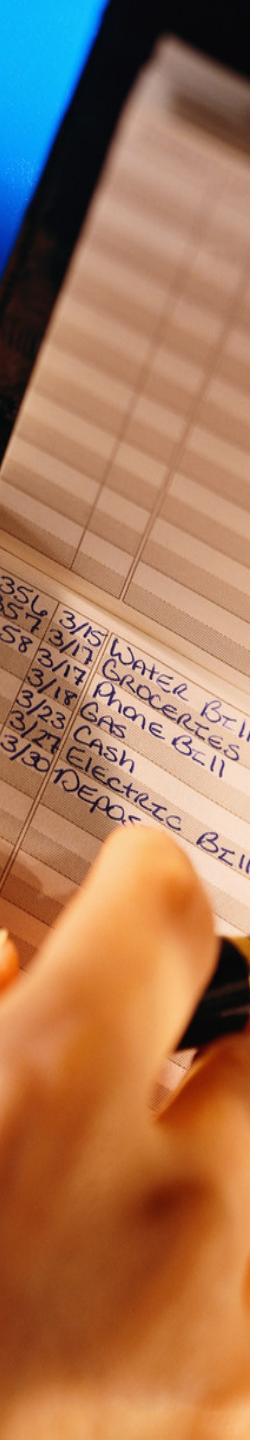 356 3/15 WATER BILL
357 3/17 GROCERIES
58 3/17 Phone BILL
3/18 GAS
3/23 CASH
3/27 ELECTRIC BILL
3/30 DEPOS